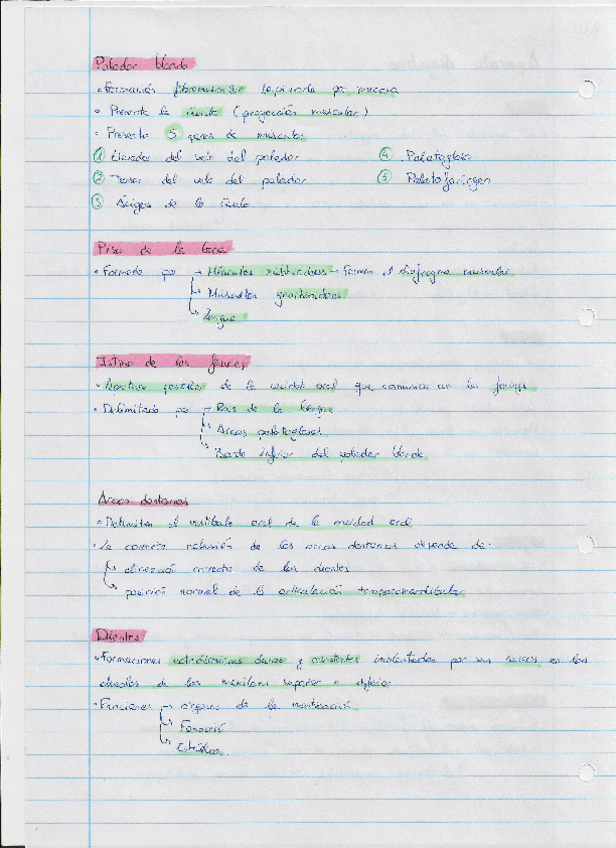 Paladar blando
• Formación fibromuscular tapizada por mucosa
• Presenta la úvula (proyección muscular)
• Presenta 5 pares de músculos
① Elevador del velo del paladar ④ Palatogloso
② Tensor del velo del paladar ⑤ Palatofaríngeo
③ Ácigos de la úvula
Piso de la boca
• Formado por → Músculos milohioideos → Forman el diafragma muscular
↳ Músculos genihioideos
↳ Lengua
Istmo de las fauces
• Apertura posterior de la cavidad oral que comunica con la faringe
• Delimitado por → Raíz de la lengua
↳ Arcos palatogloso
↳ Borde inferior del paladar blando
Arcos dentarios
• Delimitan el vestíbulo oral de la cavidad oral
• La correcta oclusión de los arcos dentarios depende de:
↳ alineación correcta de los dientes
↳ posición normal de la articulación temporomandibular
Dientes
• Formaciones duras y implantadas por sus raíces en los
alveolos de los maxilares superior e inferior
• Funciones → órganos de la masticación
↳ Fonación
↳ Estética